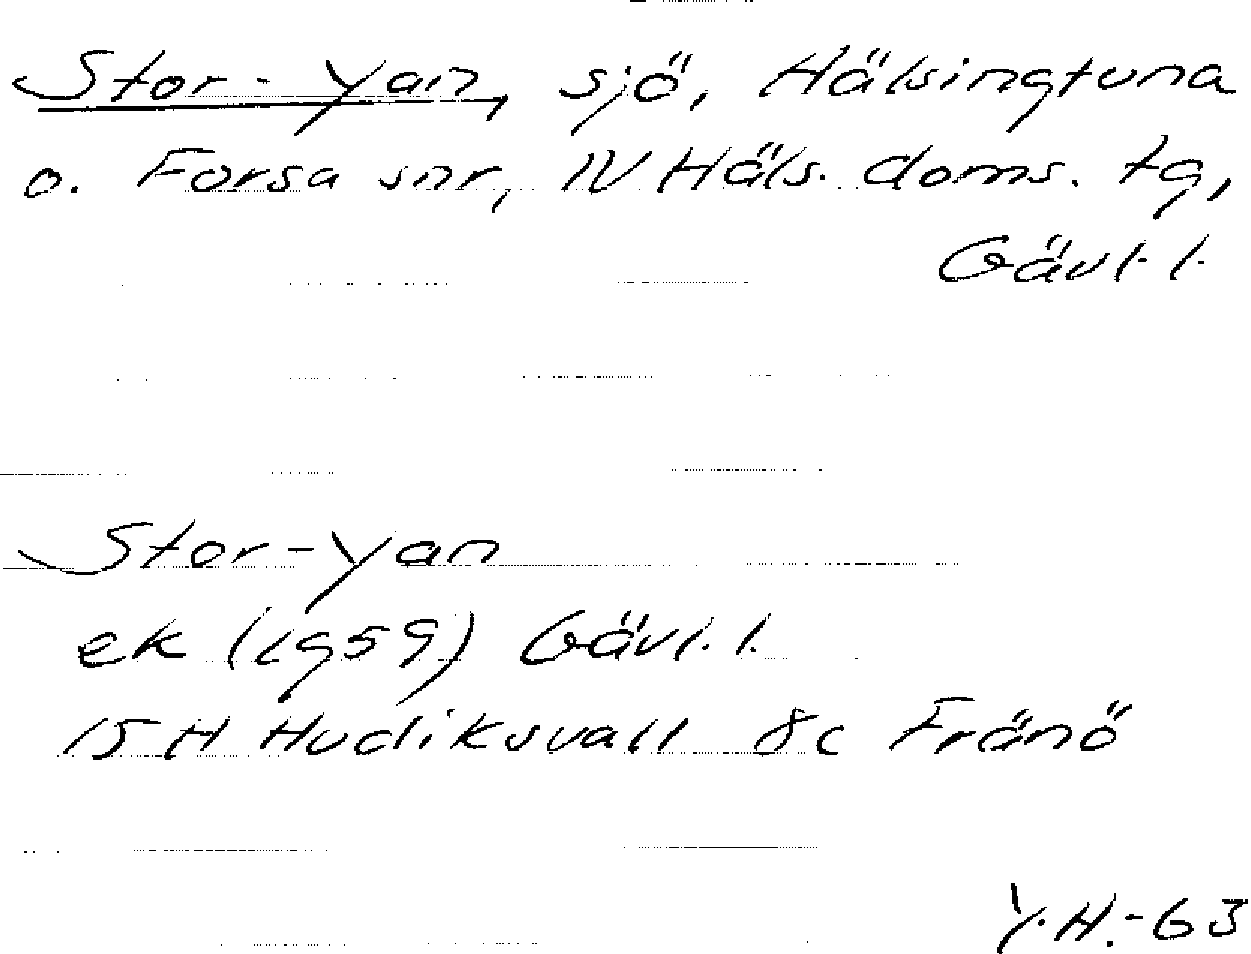 Stor-Yan, sjö, Hälsingtuna
o. Forsa snr, N Häls. doms. tg,
Gävl. l.
Stor-Yan
ek (1959) Gävl. l.
15 H Hudiksvall 8c Fränö
Y.H.-63